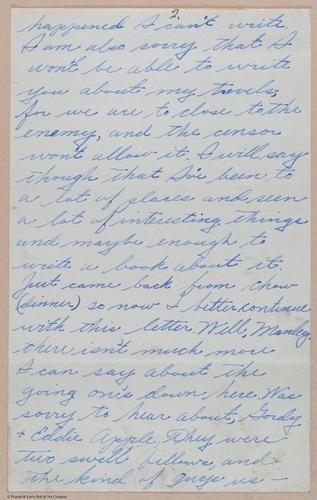 2.
happened I can't write.
I am also sorry that I
won't be able to write
you about my travels,
for we are to close to the
enemy, and the censor
won't allow it. I will say
though that I've been to
a lot of places and seen
a lot of interesting things
and maybe enough to
write a book about it.
Just came back from chow
(dinner) so now I better continue
with this letter. Well, Manley
there isn't much more
I can say about the
going on's down here. Was
sorry to hear about, Gordy
+ Eddie Apple, They were
two swell fellows, and
the kind of guys us —